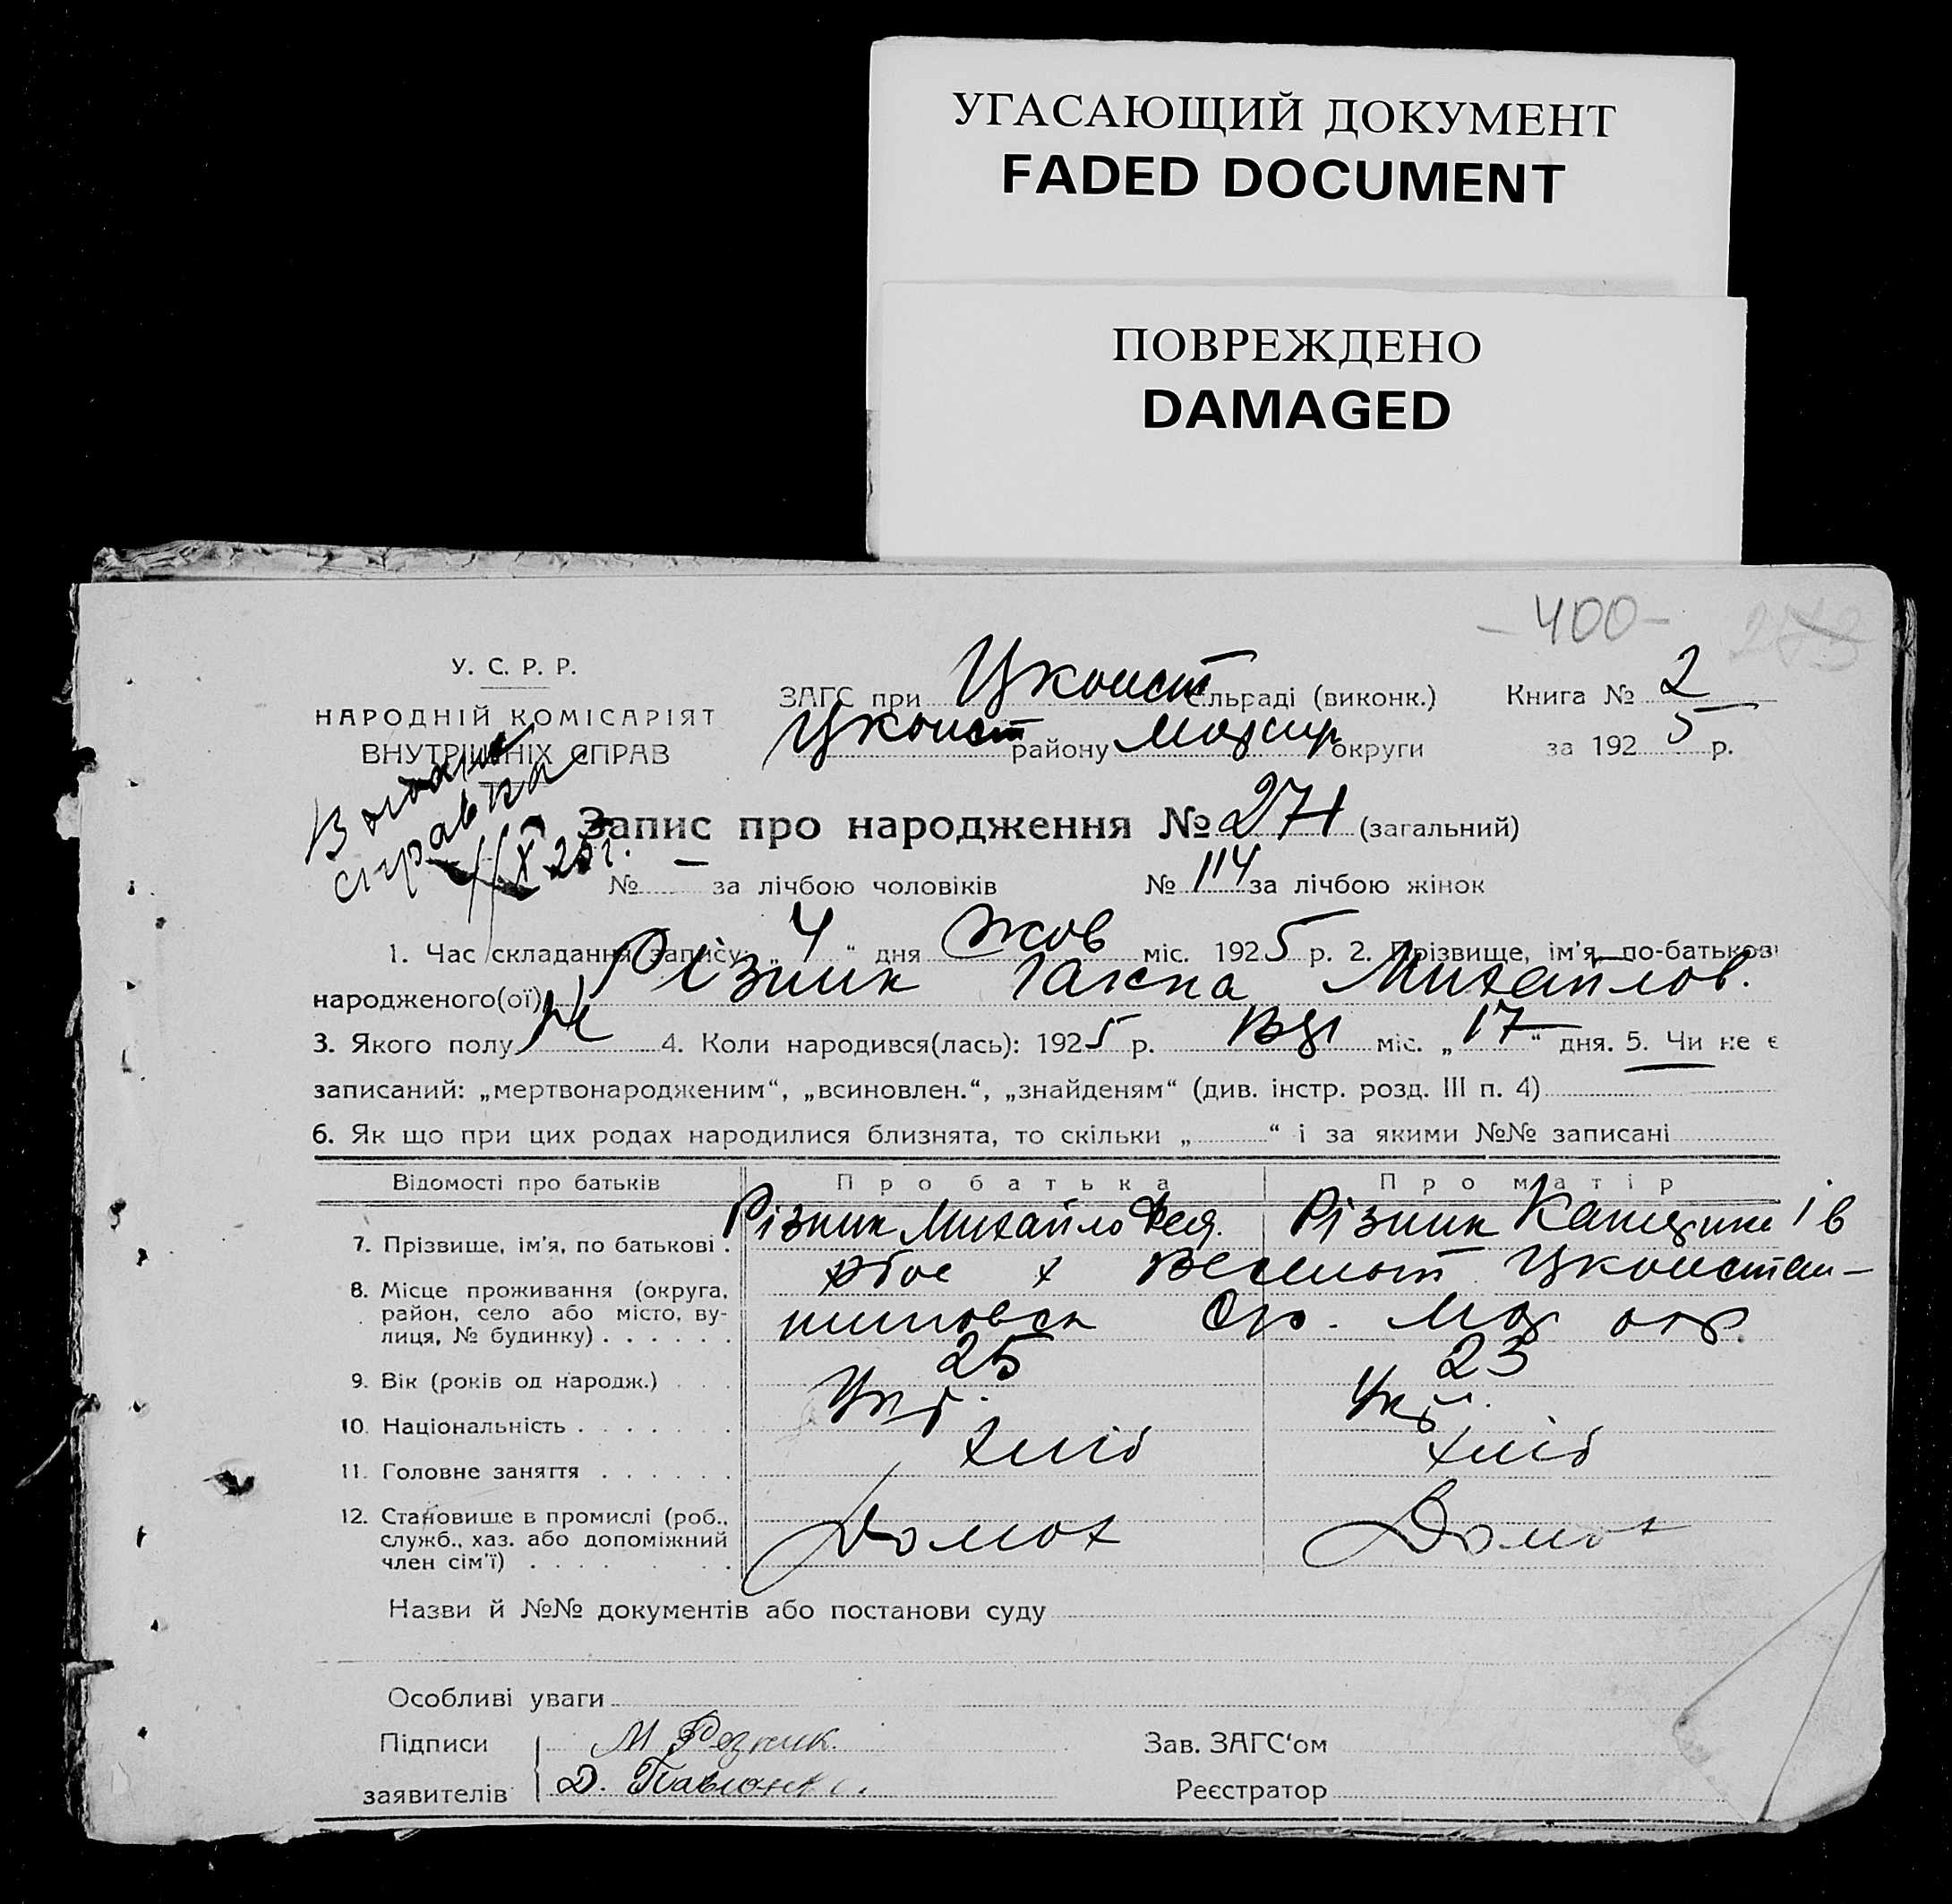 УГАСАЮЩИЙ ДОКУМЕНТ
FADED DOCUMENT
ПОВРЕЖДЕНО
DAMAGED
- 400 -
У. С. Р. Р.
НАРОДНІЙ КОМІСАРІЯТ
ВНУТРІШНІХ СПРАВ
ЗАГС при Цконст сільраді (виконк.) Книга № 2
Цконст району округи за 1925 р.
справка
Запис про народження № 271 (загальний)
№ — за лічбою чоловіків № 114 за лічбою жінок
1. Час складання запису: „4“ дня Жов міс. 1925 р. 2. Прізвище, ім'я, по-батькові
народженого(ої) Різник Ганна Михайлов.
3. Якого полу ж 4. Коли народився(лась): 1925 р. міс. „17“ дня. 5. Чи не є
записаний: „мертвонародженим“, „всиновлен.“, „знайденям“ (див. інстр. розд. III п. 4)
6. Як що при цих родах народилися близнята, то скільки „ “ і за якими №№ записані
Відомості про батьків Про батька Про матір
7. Прізвище, ім'я, по батькові . Різник Михайло Фед. Різник Катерина Ів
8. Місце проживання (округа, район, село або місто, вулиця, № будинку) . . . . . . обоє х Цконстан-
тиновск
9. Вік (років од народж.) . . . 25 23
10. Національність . . . . . . . Укр. Укр.
11. Головне заняття . . . . . . хліб хліб
12. Становище в промислі (роб.,
служб., хаз. або допоміжний
член сім'ї) . . . . . Домох Домох
Назви й №№ документів або постанови суду
Особливі уваги
Підписи М Резник Зав. ЗАГС'ом
заявителів Д. Реєстратор